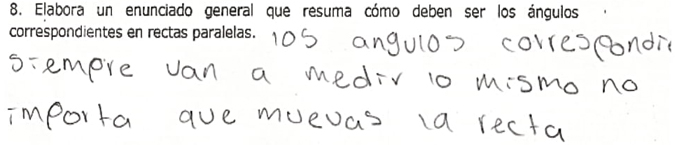 8. Elabora un enunciado general que resuma cómo deben ser los ángulos
correspondientes en rectas paralelas. los angulos correspondie
siempre van a medir lo mismo no
importa que muevas la recta